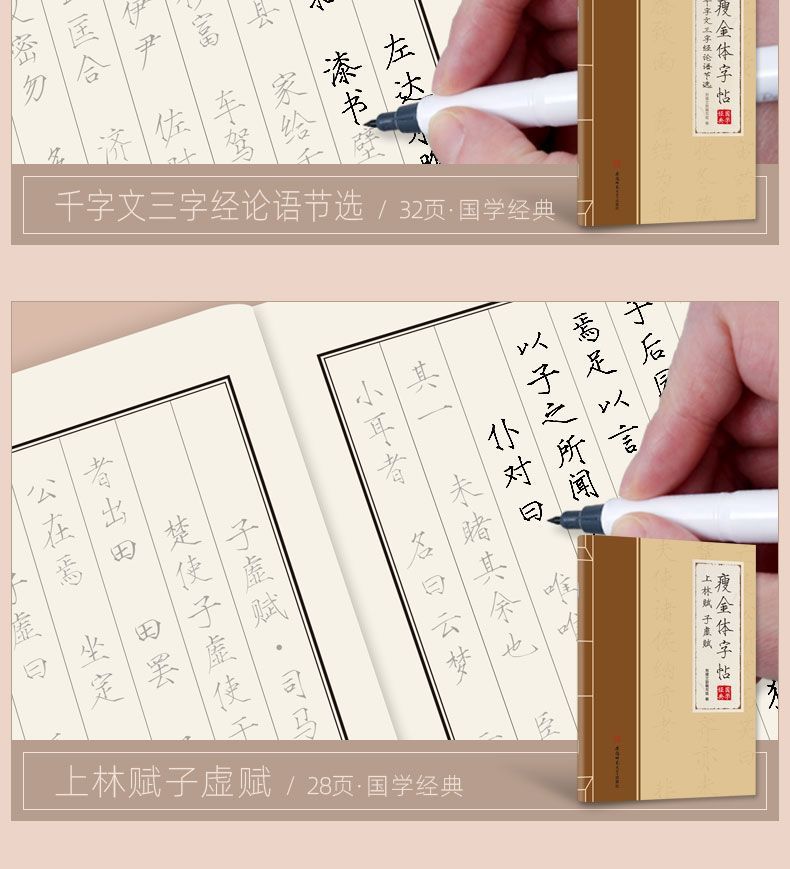 县
富
伊尹
匡合
密勿
左达
漆书壁
家给千
车驾
佐时
济
瘦金体字帖
千字文三字经论语节选
国学经典
千字文三字经论语节选 / 32页·国学经典
于后
焉足以言
以子之所闻
仆对曰
唯唯
臣
其一
未睹其余也
小耳者
名曰云梦
子虚赋·司马
楚使子虚使于
者出田
田罢
公在焉
坐定
子虚曰
瘦金体字帖
上林赋 子虚赋
国学经典
上林赋子虚赋 / 28页·国学经典